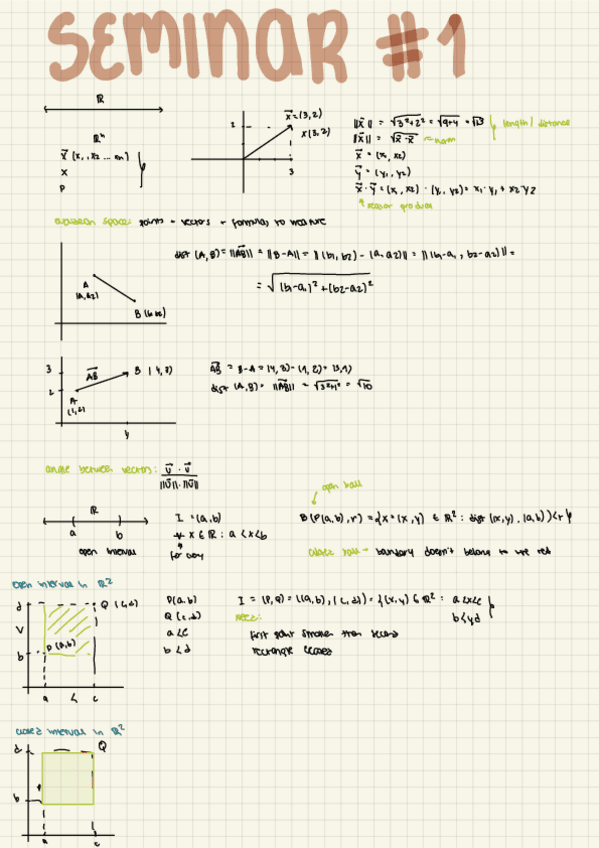 SEMINAR #1
ℝ
ℝⁿ
x⃗ (x₁, x₂ ... xn)
x
P
2
3
x⃗ = (3,2)
x(3,2)
||x⃗|| = √3²+2² = √9+4 = √13 } length / distance
||x⃗|| = √x⃗·x⃗ → norm
x⃗ = (x₁, x₂)
y⃗ = (y₁, y₂)
x⃗ · y⃗ = (x₁, x₂) · (y₁, y₂) = x₁·y₁ + x₂y₂
scalar product
euclidean space: points + vectors + formulas to measure
A
(a₁,a₂)
B (b₁,b₂)
dist (A,B) = ||AB⃗|| = ||B-A|| = || (b₁, b₂) - (a₁, a₂)|| = ||(b₁-a₁, b₂-a₂)|| =
= √(b₁-a₁)² + (b₂-a₂)²
3
2
AB⃗
A
(1,2)
B (4,3)
4
AB⃗ = B-A = (4,3) - (1,2) = (3,1)
dist (A,B) = ||AB⃗|| = √3²+1² = √10
angle between vectors: u⃗ · v⃗
||u⃗|| · ||v⃗||
ℝ
a b
open interval
I = (a,b)
∀ x ∈ ℝ : a < x < b
for any
open ball
B (P(a,b), r) = {x = (x,y) ∈ ℝ² : dist (x,y), (a,b)) < r}
closed ball → boundary doesn't belong to the set
open interval in ℝ²
d
V
b
P (a,b)
Q (c,d)
a < c
P(a,b)
Q (c,d)
a < c
b < d
I = (P,Q) = ((a,b), (c,d)) = {(x,y) ∈ ℝ² : a<x<c
b<y<d }
first point smaller than second
rectangle
closed interval in ℝ²
d
Q
b
P
a c